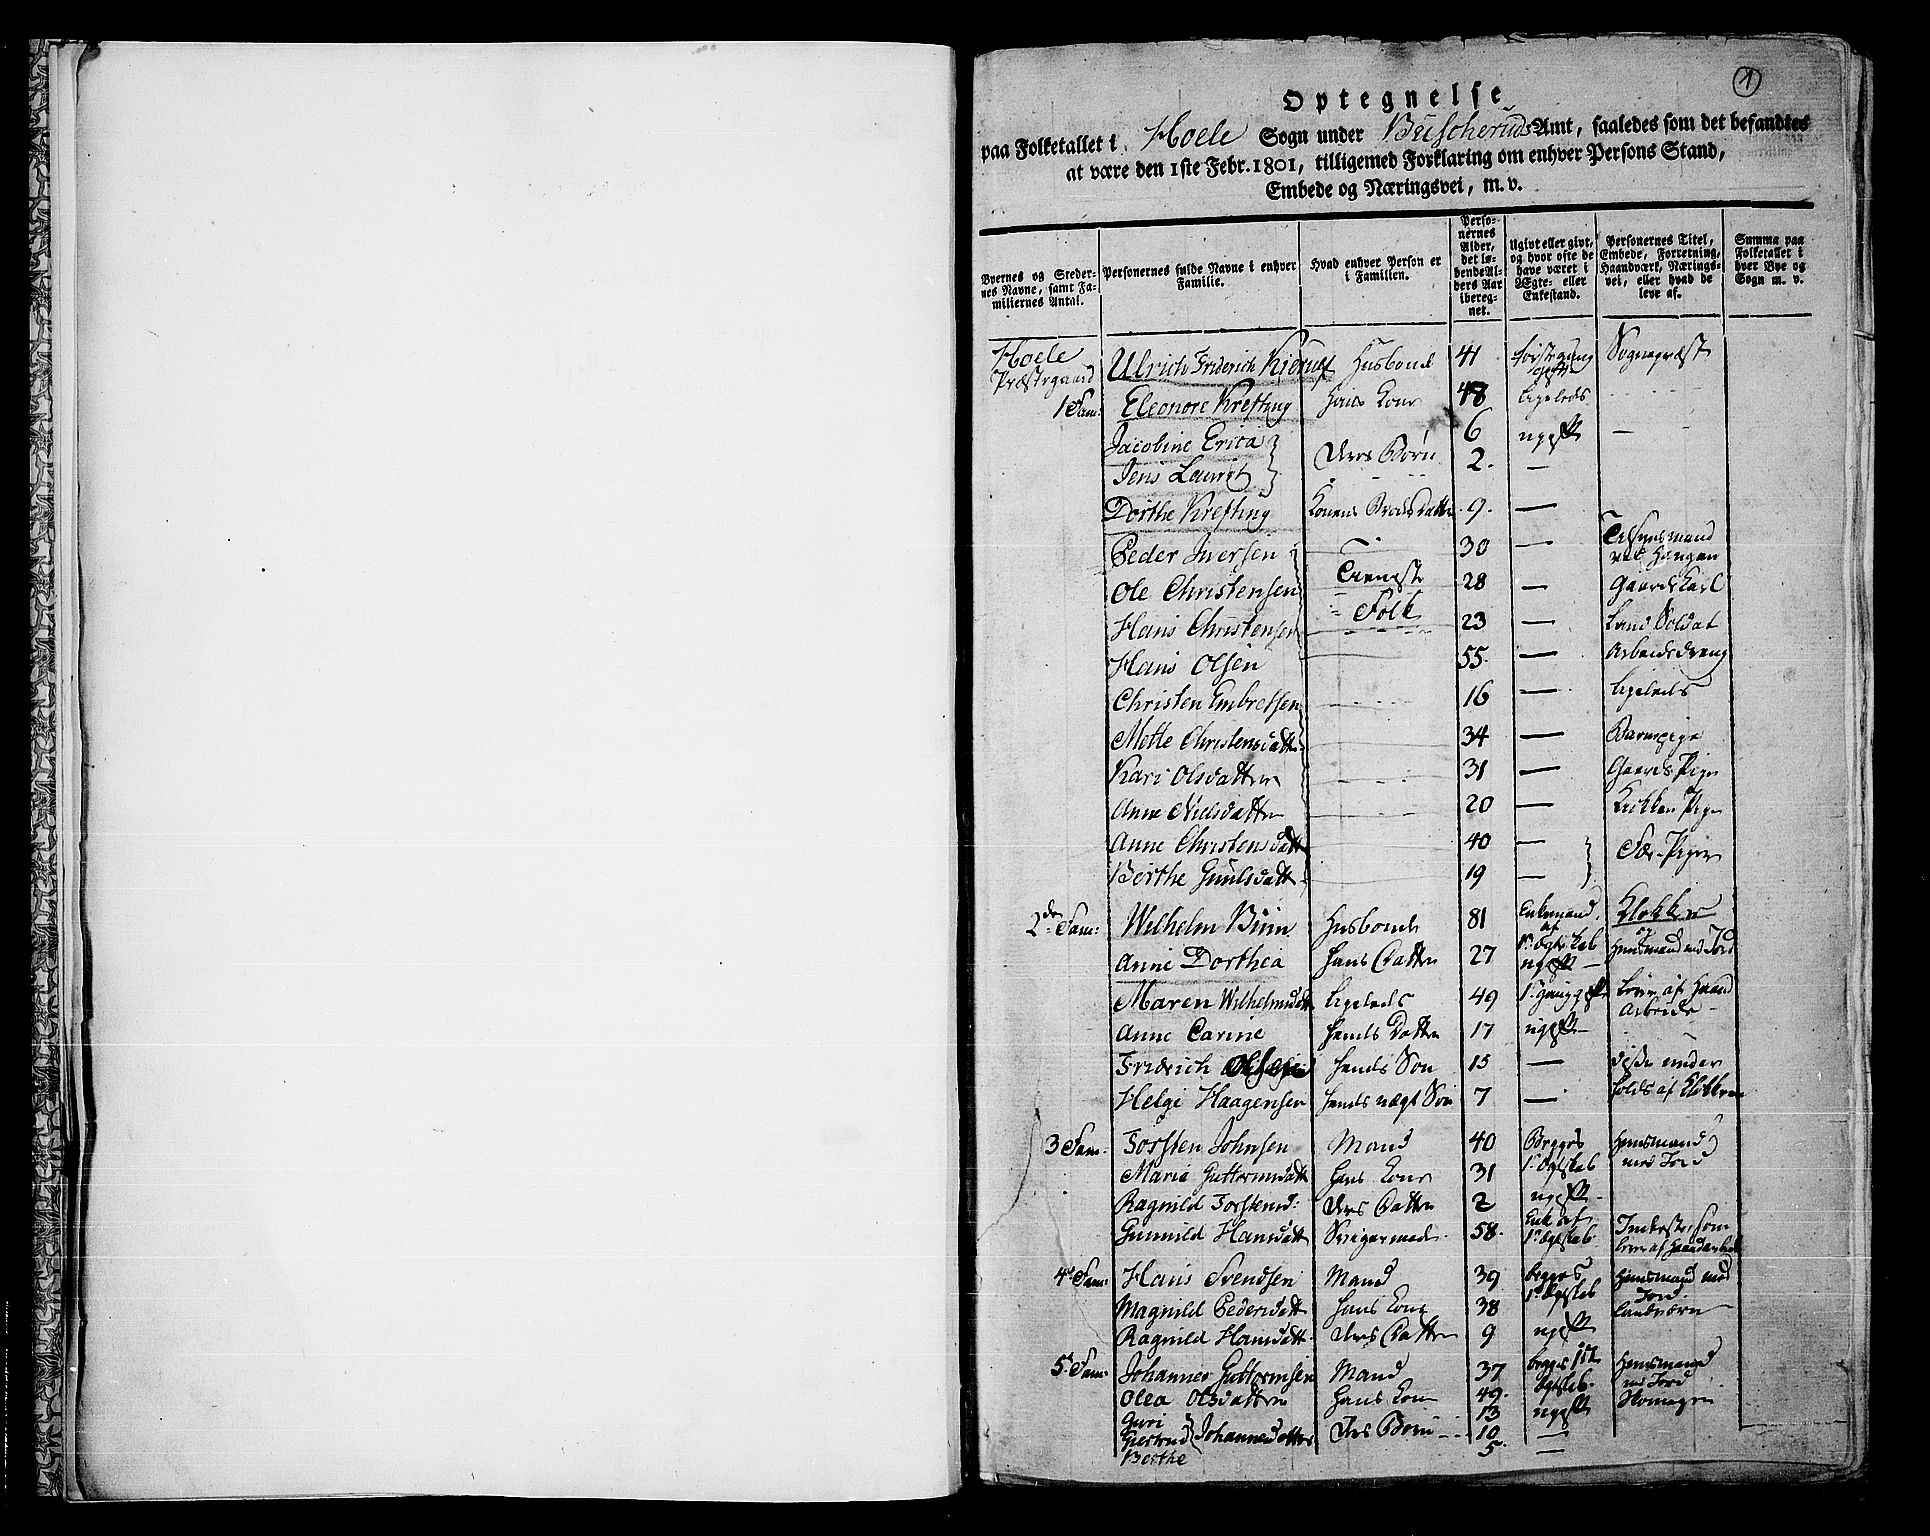 1
Optegnelse
paa Folketallet i Hoele Sogn under Buscheruds Amt, saaledes som det befandtes
at være den 1ste Febr. 1801, tilligemed Forklaring om enhver Persons Stand,
Embede og Næringsvei, m. v.
Byernes og Steder-nes Navne, samt Fa-miliernes Antal.
Personernes fulde Navne i enhver Familie.
Hvad enhver Person er i Familien.
Perso-nernes Alder, det lø-bende Al-ders Aar ibereg-net.
Ugivt eller givt, og hvor ofte de have været i Ægte- eller Enkestand.
Personernes Titel, Embede, Forretning, Haandværk, Nærings-vei, eller hvad de leve af.
Summa paa Folketallet i hver Bye og Sogn m. v.
Hoele Præstegaard
Ulrich Friderich Kierulf Husbond 41 første gang gift Sognepræst
1 Fam: Eleonore Krefting Hans Kone 48 ligeleds
Jacobine Erica 6 ugift —
Deres Børn
Jens Laurit 2. —
Dorthe Krefting Konens Broderdatter 9. —
Peder Iversen 30 —
Ole Christensen Tieneste 28 — Gaardskarl
Hans Christensen Folk 23 — Land Soldat
Hans Olsen 55. — Arbeidsdreng
Christen Embretsen 16 — ligeleds
Mette Christensdatt 34 — Barnepige
Kari Olsdatter 31 — Gaards Pige
Anne Nielsdatter 20 — Kokken Pige
Anne Christensdatt 40 —
Fæ-Piger
Berthe Gunilsdatt 19 —
2de Fam: Wilhelm Bünn Husbond 81 Enkemand af 1te Ægteskab Klokker og
Anne Dorthea Hans Datter 27 ugift — Huusmand med Jord
Maren Wilhelmsdatt ligeleds 49 1. gang gift Lever af Haand Arbeide
Anne Carine Hendes Datter 17 ugift
Fridrich Olsen Hendes Søn 15 — disse under
Helge Haagensen Hendes uægte Søn 7 — holdes af Klokkeren
3 Fam: Torsten Johnsen Mand 40 Begges Huusmand
Marie Guttormsdatt Hans Kone 31 1te Ægteskab med Jord
Ragnild Torstensd: Deres Datter 2 ugift
Gunnild Hansdatt Svigermoder 58. Enke af 1te Ægteskab Inderste, som lever af Haandarbeide
4de Fam: Hans Svendsen Mand 39 begges 1te Ægteskab Huusmand med Jord
Magnild Pedersdatt Hans Kone 38 Landværn
Ragnild Hansdatt. Deres Datter 9 ugift
5te Fam: Johannes Guttormsen Mand 37 begges Huusmand
Olea Olsdatter Hans Kone 49. Ægteskab. med Jord
Guri 13 ugift Skomager
Giertrud Johannesdatter Deres Børn 10 —
Berthe 5. —